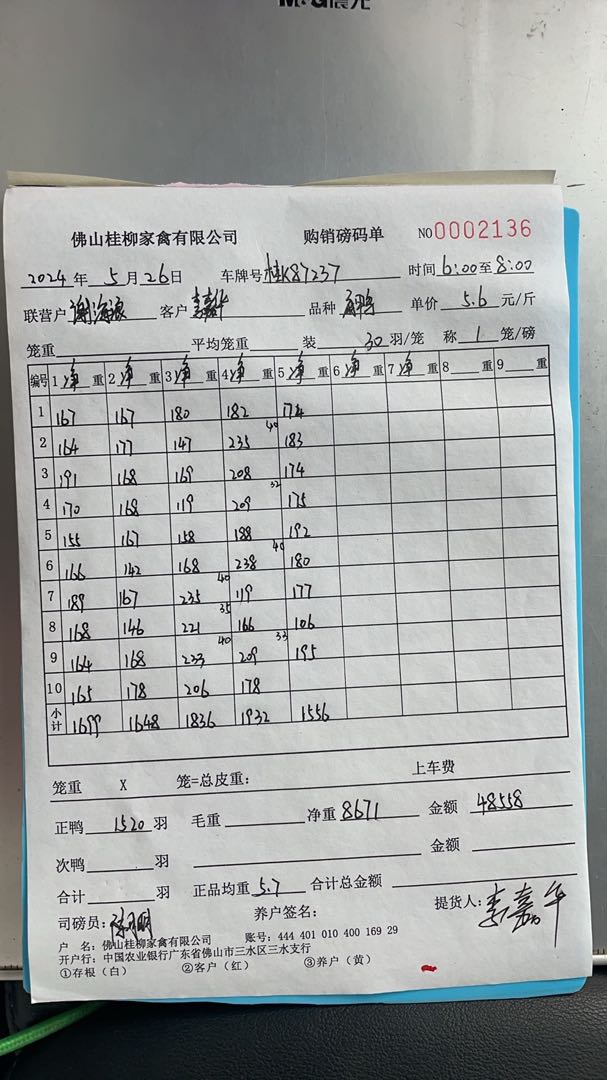 M&G晨光
佛山桂柳家禽有限公司 购销磅码单 NO0002136
2024年5月26日 车牌号桂K87237 时间6:00至8:00
联营户谢海浪 客户李嘉华 品种 单价5.6元/斤
笼重 平均笼重 装30羽/笼 称1笼/磅
编号 1净重 2净重 3净重 4净重 5净重 6净重 7净重 8重 9重
1 167 167 180 182 174
2 164 177 147 235 40 183
3 191 168 169 208 174
4 170 168 119 209 32 175
5 155 167 158 188 192
6 166 142 168 238 40 180
7 189 167 235 40 119 177
8 168 146 221 35 166 106
9 164 168 233 40 209 33 195
10 165 178 206 178
小计 1699 1648 1836 1932 1556
笼重 X 笼=总皮重: 上车费
正鸭1520羽 毛重 净重8671 金额48558
次鸭羽 金额
合计羽 正品均重5.7 合计总金额
司磅员: 养户签名: 提货人:李嘉华
户 名:佛山桂柳家禽有限公司 账号:444 401 010 400 169 29
开户行:中国农业银行广东省佛山市三水区三水支行
①存根(白) ②客户(红) ③养户(黄)